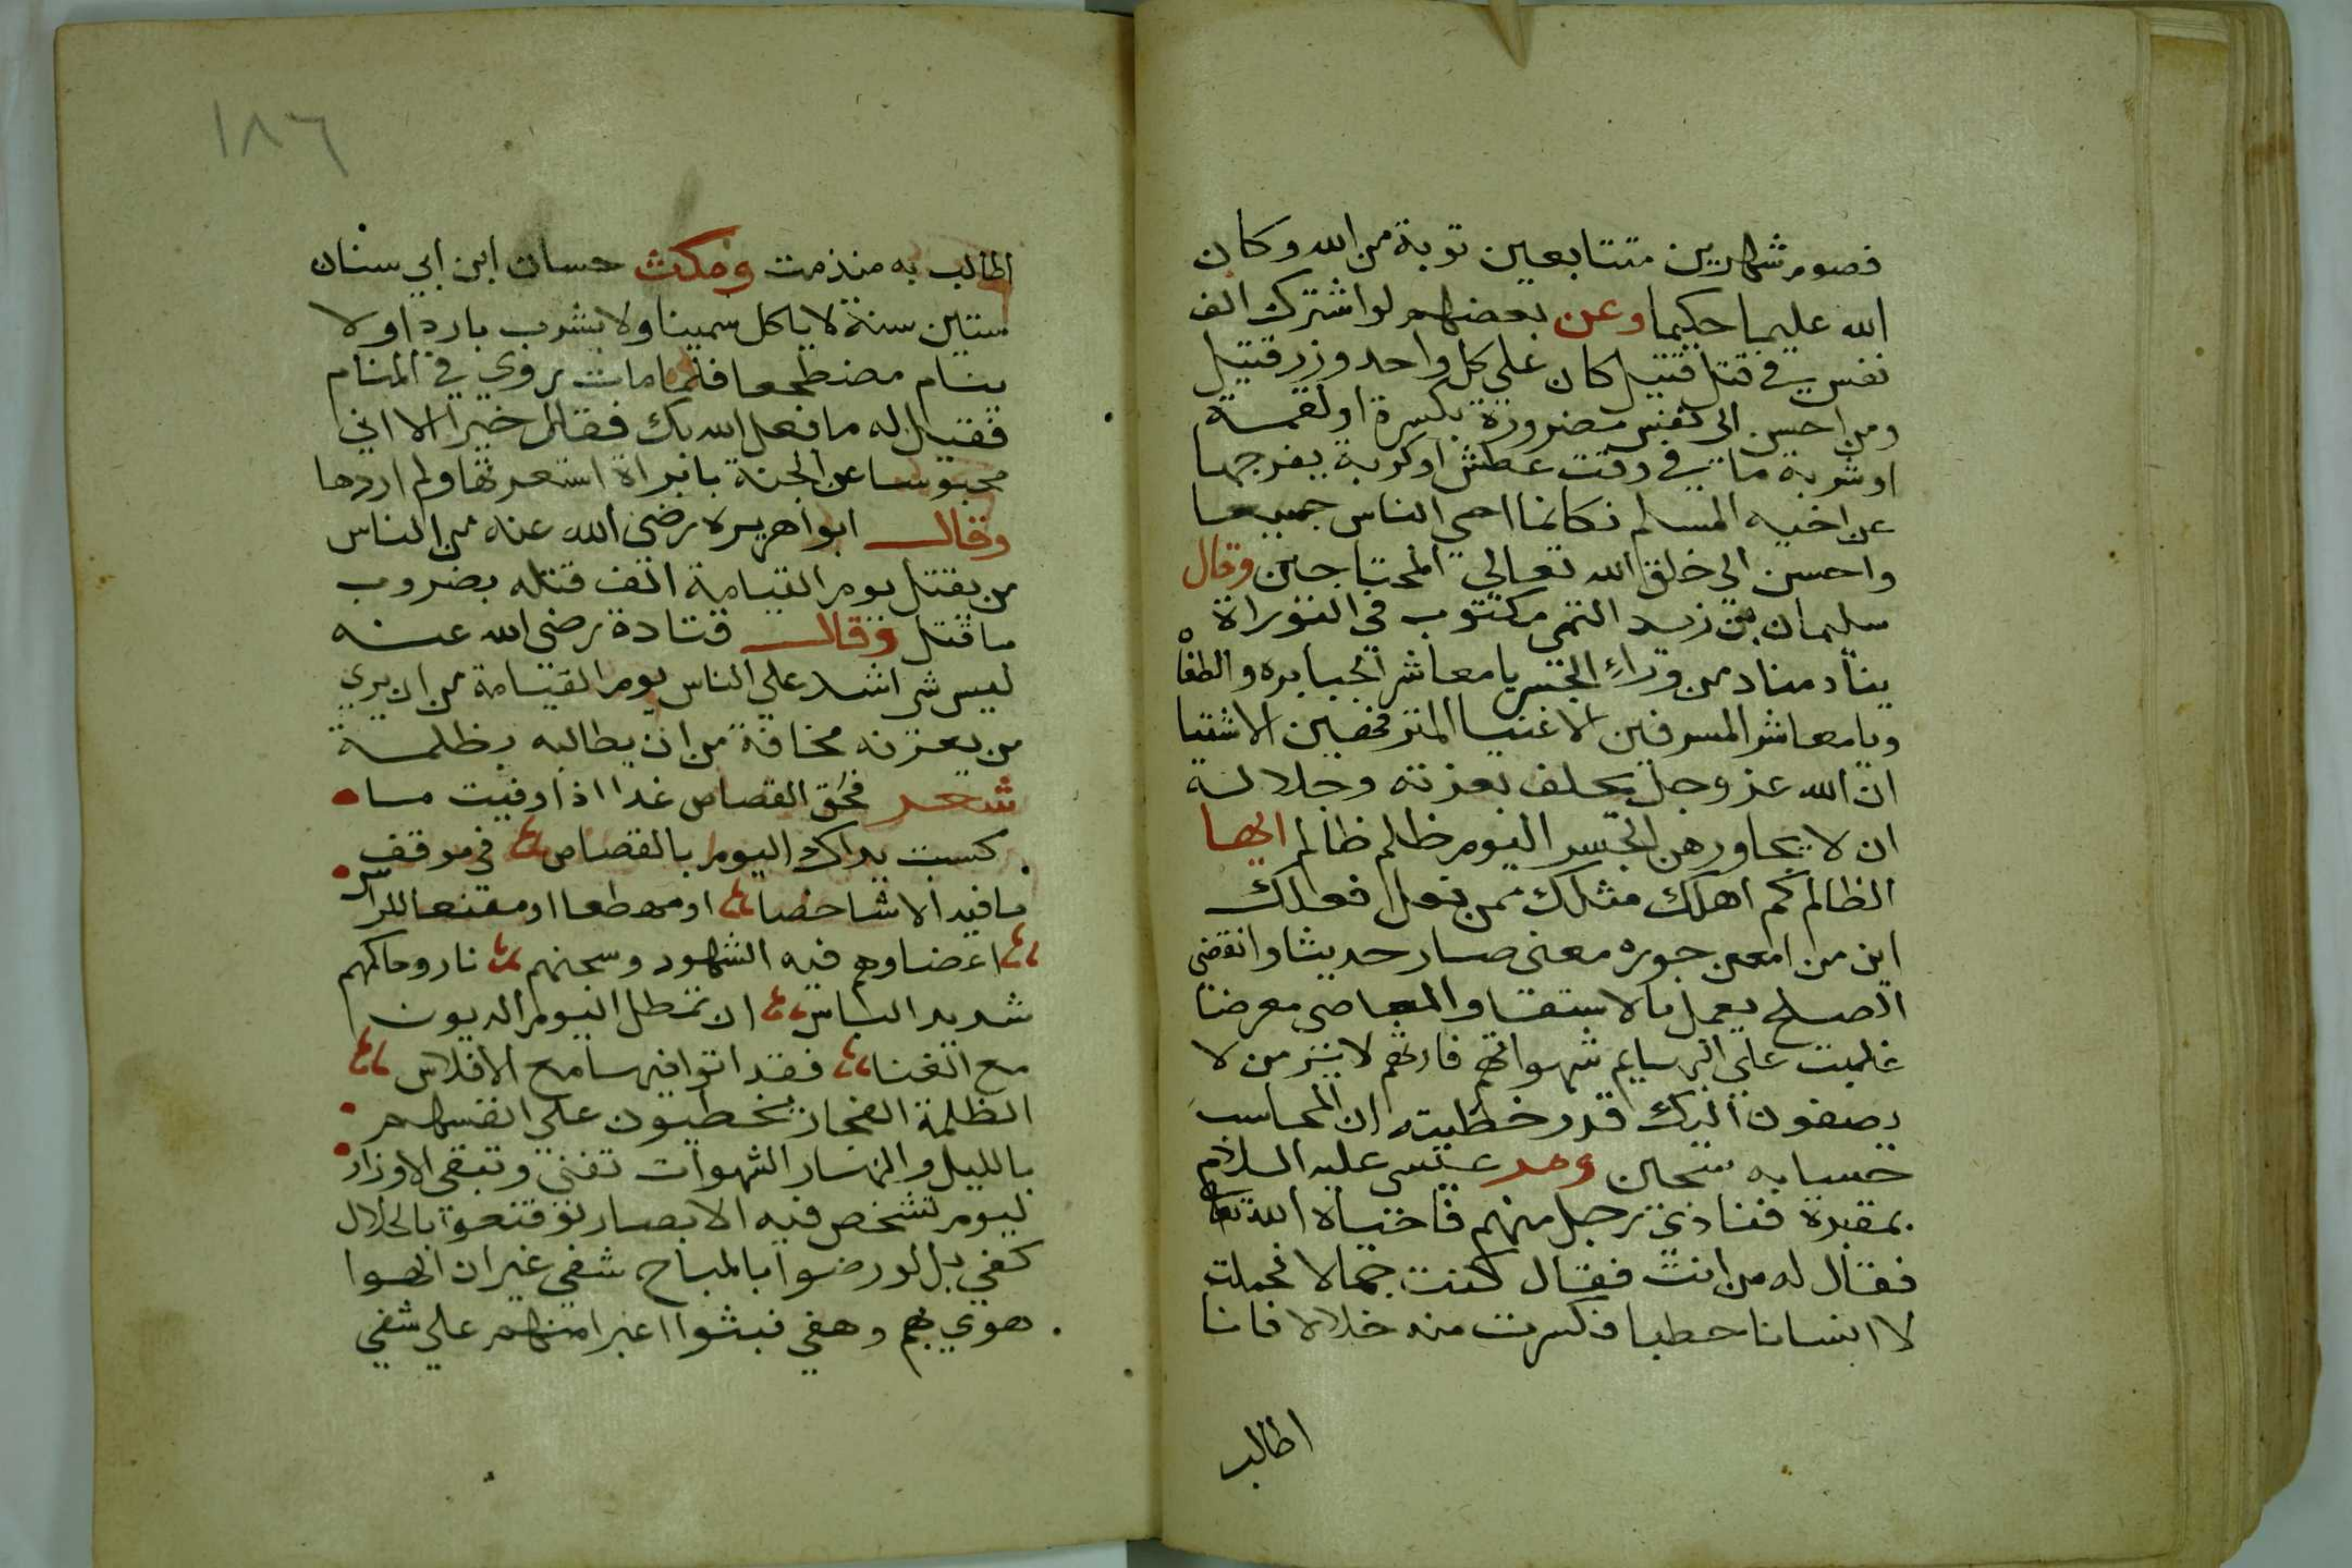 فصوم شهرين متتابعين توبة من الله وكان
الله عليما حكيما وعن بعضهم لو اشترك الف
نفس في قتل قتيل كان علي كل واحد وزر قتيل
ومن احسن الي نفس مضرورة بكسرة او لقمة
او شربة ما في وقت عطش او كربة يفرجها
عن اخيه المسلم فكانما احي الناس جميعا
واحسن الي خلق الله تعالي المحتاجين وقال
سليمان بن زيد التمى مكتوب في التوراة
يناد مناد من وراء الجسر يا معاشر الجبابره والطغاه
ويا معاشر المسرفين الاغنيا المترفخين الاشقيا
ان الله عز وجل يحلف بعزته وجلالته
ان لا يجاور هن الجسر اليوم ظلم ظالم ايها
الظالم كم اهلك مثلك ممن يفعل فعلك
اين من امعن جوره معنى صار حديثا وانقضى
الصلح يعمل بالاستقا والمعاصى معرضا
غلبت علي شهواتهم لا
يصفون اليك قدر خطيته ان المحاسب
حسابه ومر عيسى عليه السلام
بمقبرة فنادي رجل منهم فاحياه الله تعا
فقال له من انت فقال كنت جمالا فحملت
لا انسانا حطبا فكسرت منه خلالا فانا
اطالب
١٨٦
اطالب به منذ مت ومكث حسان ابن ابي سنان
ستين سنة لا ياكل سمينا ولا يشرب باردا ولا
ينام مضطجعا فلما مات روي في المنام
فقيل له ما فعل الله بك فقال خيرا الا اني
محبوسا عن الجنة بابراة استعرتها ولم اردها
وقال ابوا هريره رضي الله عنه من الناس
من يقتل يوم القيامة الف قتله بضروب
ما قتل وقال قتادة رضي الله عنه
ليس شي اشد علي الناس يوم القيامة من ان يري
من يعرفه مخافة من ان يطالبه بظلمة
شعر فحق القصاص غدا اذا وفيت ما
كسبت يداك اليوم بالقصاص في موقف
ما فيه الا شاخصا او مهطعا او مقنعا للراس
اعضاوهم فيه الشهود وسجنهم نار وحاكمهم
شديد الباس ان تمطل اليوم الديون
مع الغنا فغدا توافيها مع الافلاس
الظلمة الفجار يخطيون علي انفسهم
بالليل والنهار الشهوات تفني وتبقى الاوزار
ليوم تشخص فيه الابصار لو قنعوا بالحلال
كفي بل لو رضوا بالمباح شفي غير ان الهوا
هوي بهم وهفي فبشوا اعبرا منهم علي شفي